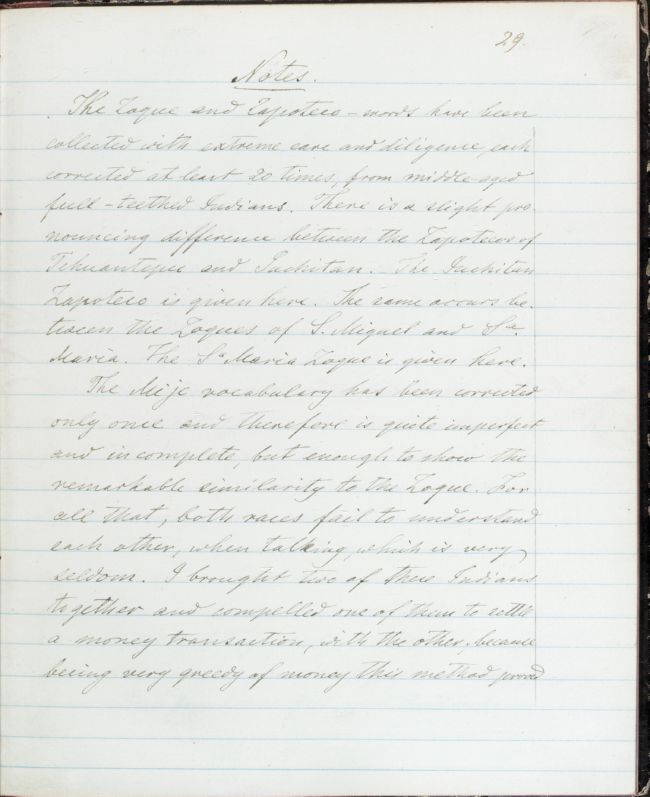 29.
Notes.
The Zoque and Zapoteco-words have been
collected with extreme care and diligence, each
corrected at least 20 times, from middle-aged
full-teethed Indians. There is a slight pro-
nouncing difference between the Zapotecos of
Tehuantepec and Juchitan. The Juchitan
Zapoteco is given here. The same occurs be-
tween the Zoques of S. Miguel and Sta.
Maria. The Sa Maria Zoque is given here.
The Mije vocabulary has been corrected
only once and therefore is quite imperfect
and incomplete, but enough to show the
remarkable similarity to the Zoque. For
all that, both races fail to understand
each other, when talking, which is very
seldom. I brought two of these Indians
together and compelled one of them to settle
a money transaction, with the other. because
being very greedy of money this method proved